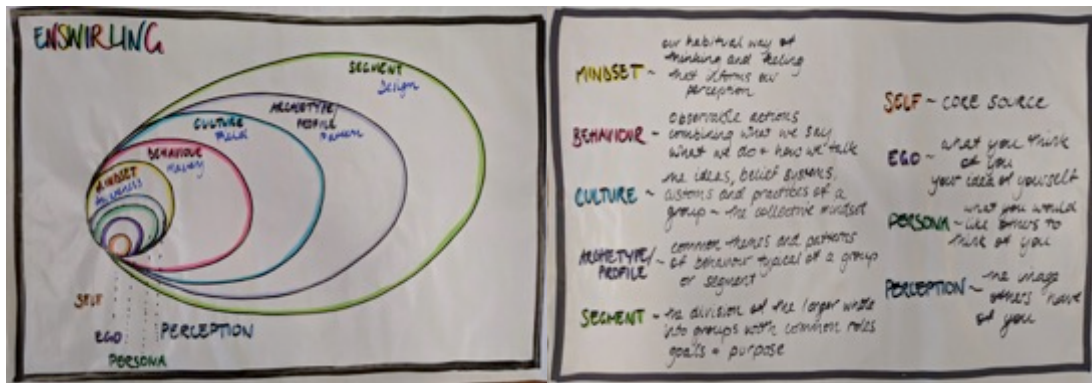 ENSWIRLING
SEGMENT
Design
ARCHETYPE/
PROFILE
Pattern
CULTURE
Field
BEHAVIOUR
MINDSET
Awareness
SELF
EGO
PERCEPTION
PERSONA
MINDSET ~ our habitual way of
thinking and feeling
that informs our
perception
BEHAVIOUR ~ observable actions
combining what we say
what we do + how we talk
CULTURE ~ the ideas, belief systems,
customs and practices of a
group ~ the collective mindset
ARCHETYPE/
PROFILE ~ common themes and patterns
of behaviour typical of a group
or segment
SEGMENT ~ the division of the larger whole
into groups with common roles
goals + purpose
SELF ~ CORE SOURCE
EGO ~ what you think
of you
your idea of yourself
PERSONA ~ what you would
like others to
think of you
PERCEPTION ~ the image
others have
of you